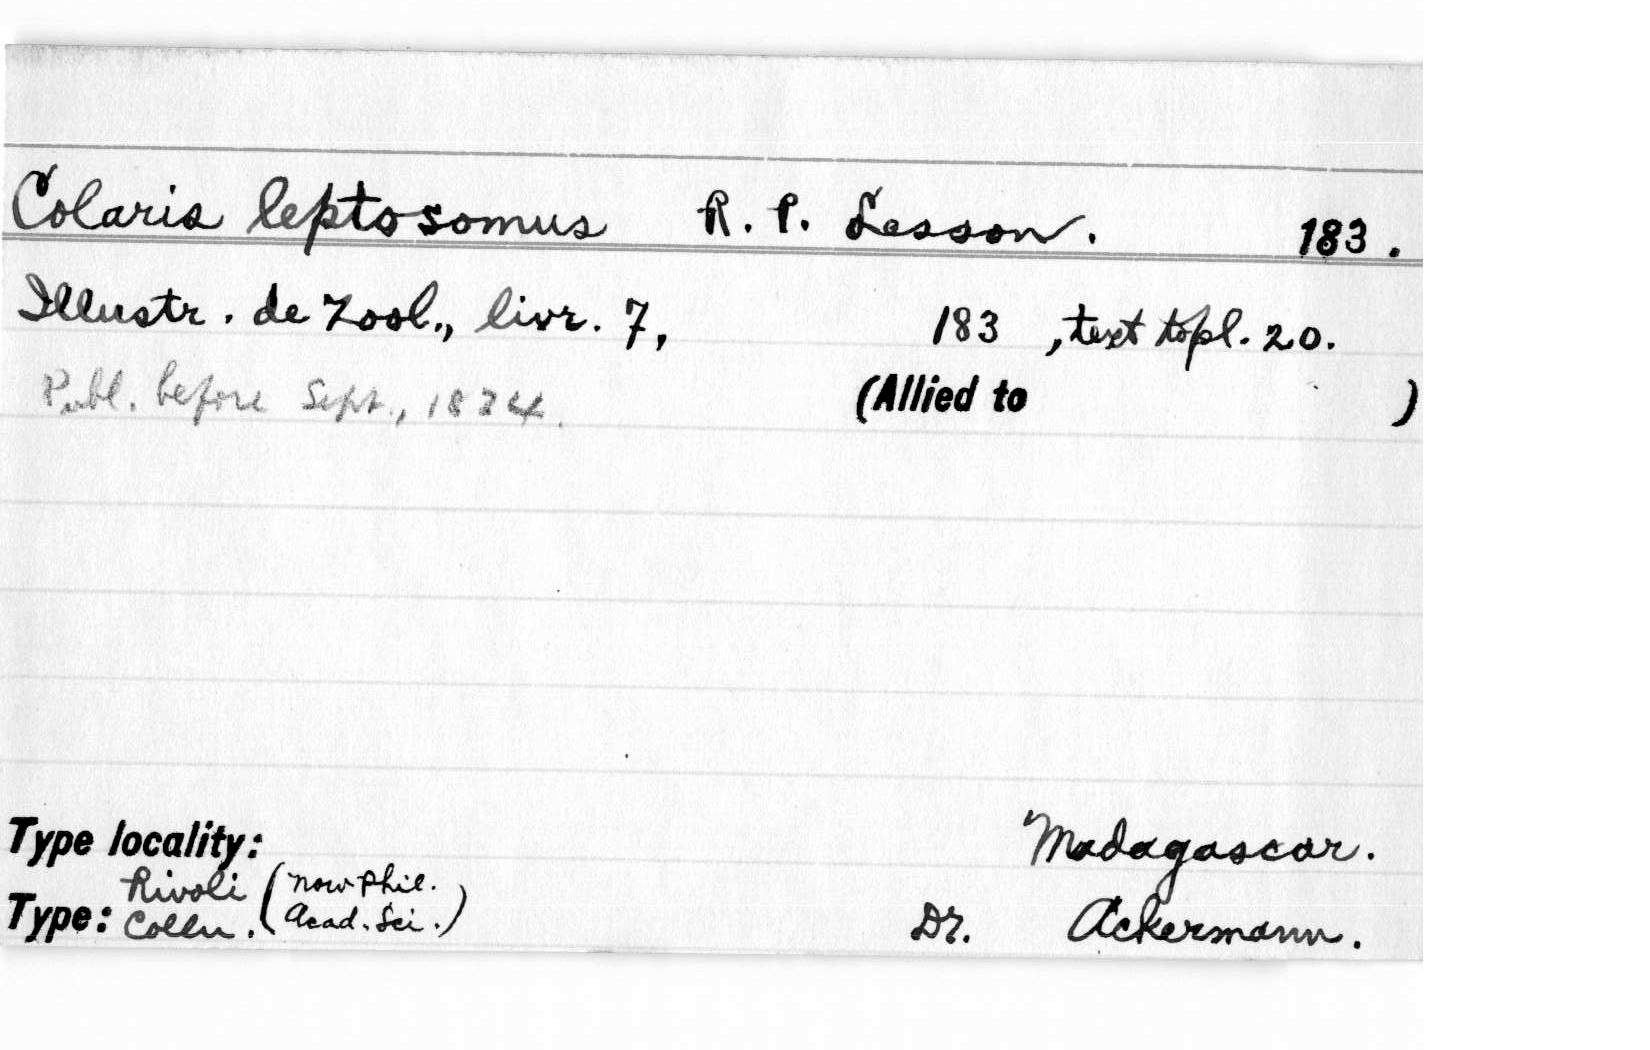 Colaris leptosomus R. P. Lesson. 183.
Illustr. de Zool., livr. 7, 183 , text to pl. 20.
Publ. before Sept., 1834.
(Allied to )
Type locality: Madagascar.
Type: Rivoli Colln. (now Phil. Acad. Sci.) Dr. Ackermann.